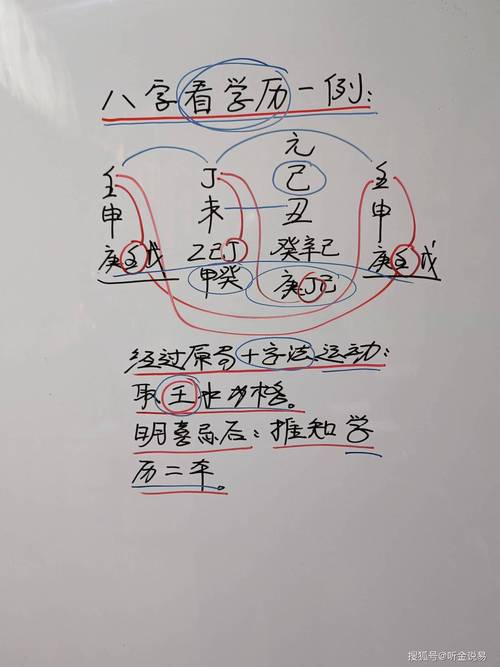 八字看学历一例:
元
壬 丁 己 壬
申 未 丑 申
庚壬戊 乙己丁 癸辛己 庚壬戊
甲癸 庚丁己
经过原局十字法运动:
取壬水为格。
明喜忌后:推知学
历二本。
搜狐号@听金说易